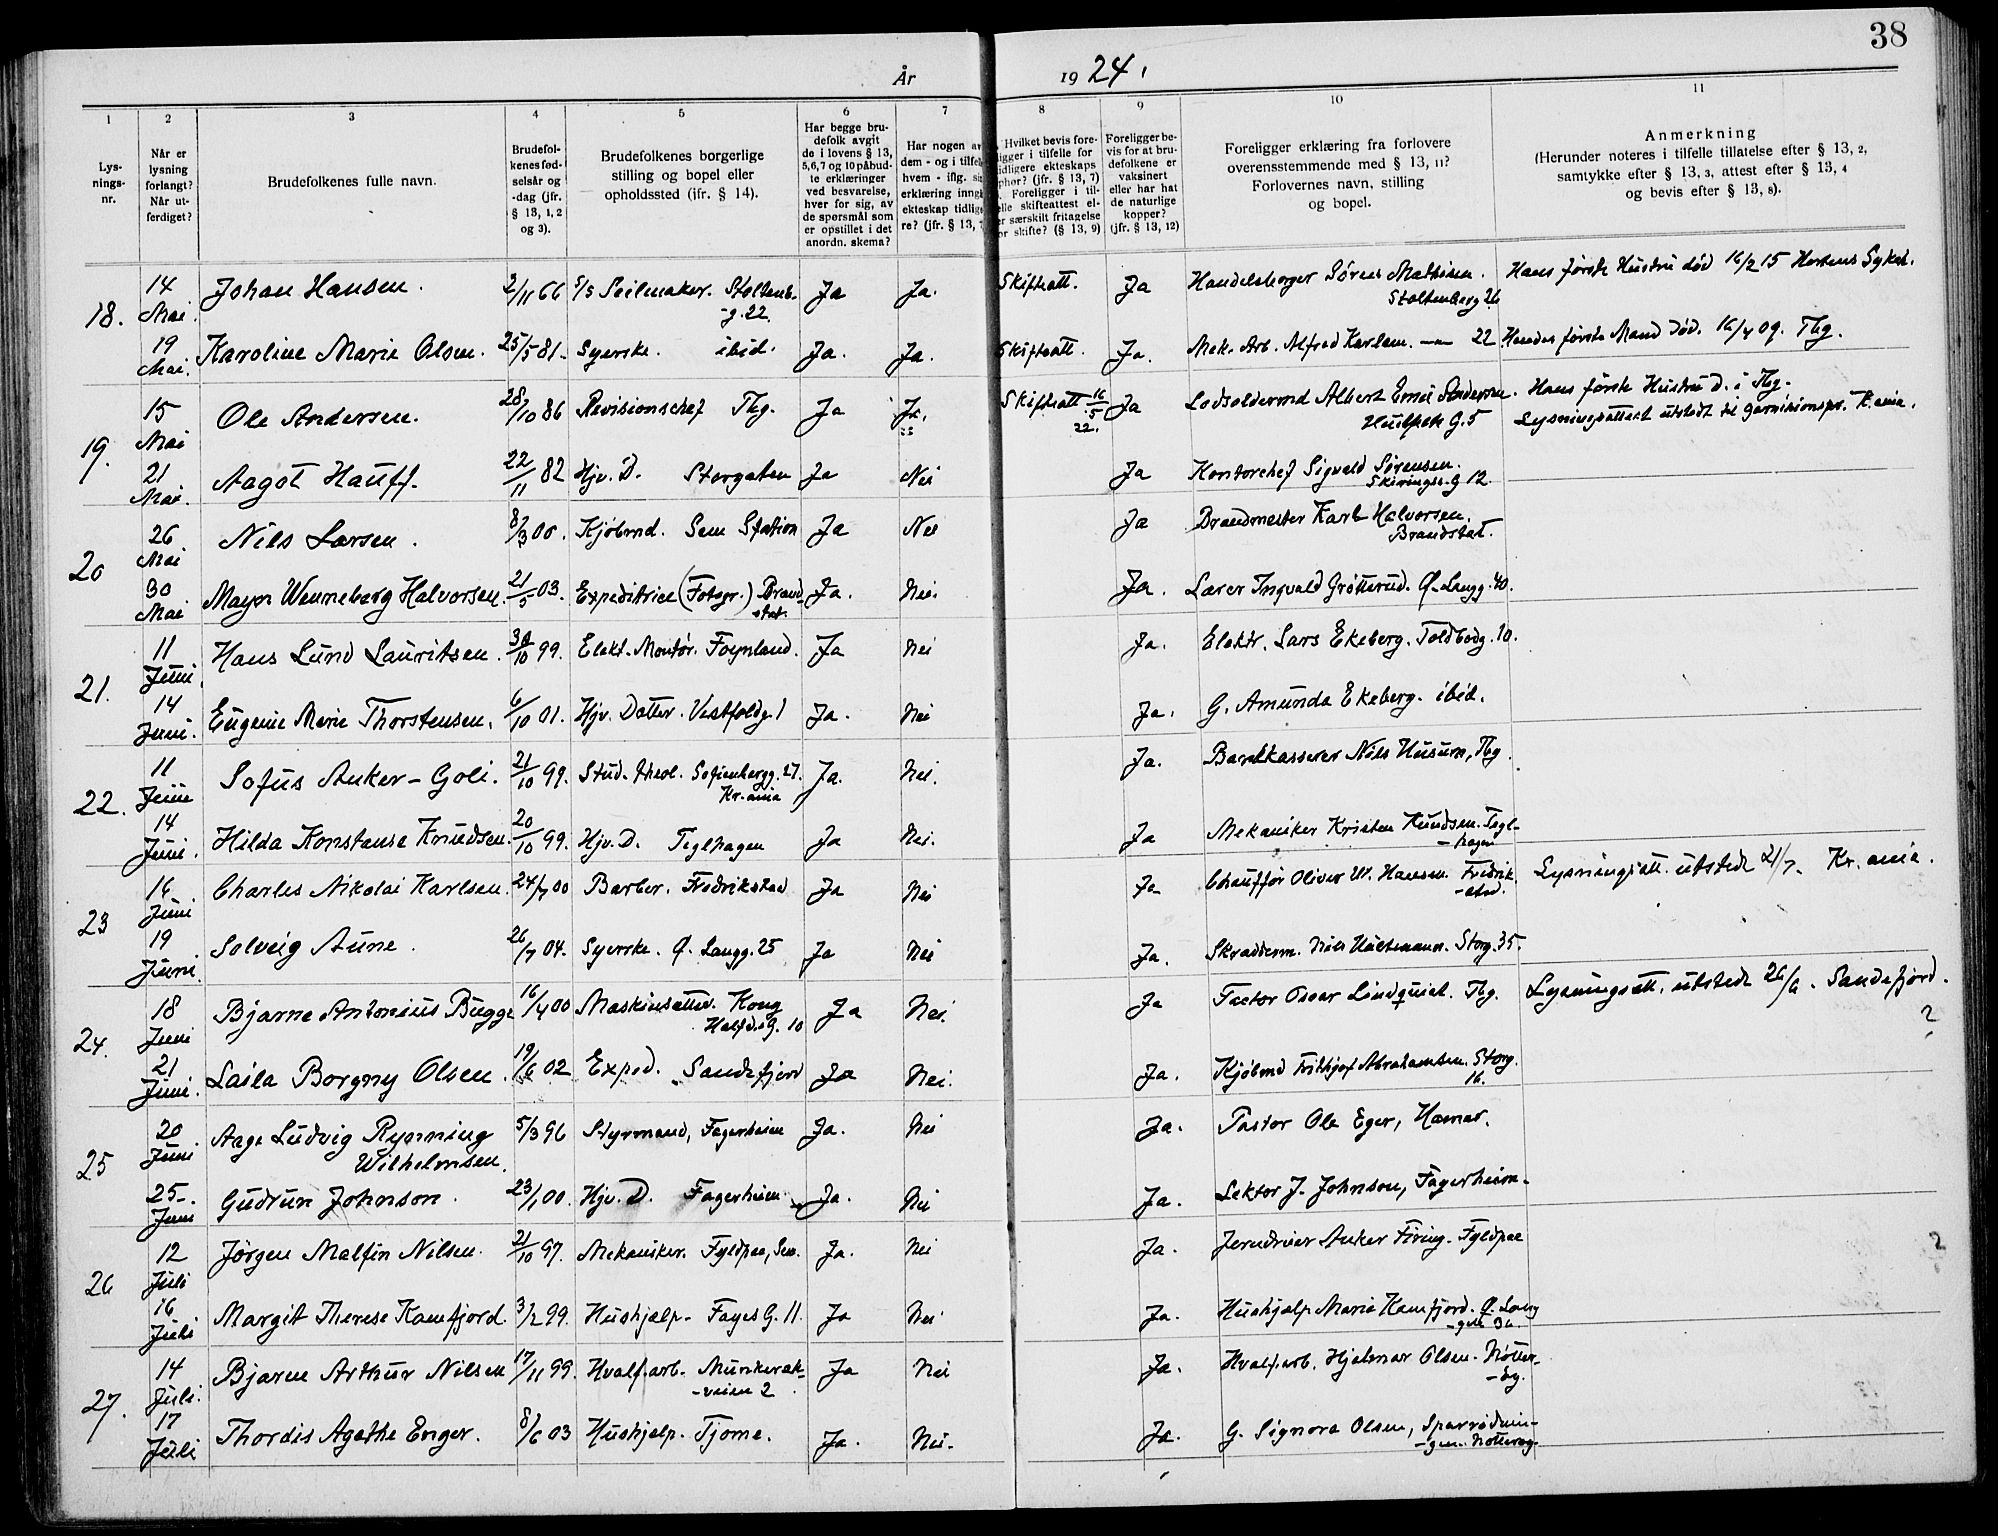 38
År 1924.
1 2 3 4 5 6 7 8 9 10 11
Lys-
nings-
nr.
Når er
lysning
forlangt?
Når ut-
ferdiget?
Brudefolkenes fulle navn.
Brudefol-
kenes fød-
selsår og
-dag (jfr.
§ 13, 1, 2
og 3).
Brudefolkenes borgerlige
stilling og bopel eller
opholdssted (jfr. § 14).
Har begge bru-
defolk avgit
de i lovens § 13,
5,6,7 og 10 påbud-
te erklæringer
ved besvarelse,
hver for sig, av
de spørsmål som
er opstillet i det
anordn. skema?
Har nogen av
dem - og i tilfel
hvem - iflg. si
erklæring inngå
ekteskap tidlige
re? (jfr. § 13, 7
Hvilket bevis fore-
ligger i tilfelle for
idligere ekteskaps
phør? (jfr. § 13, 7)
. Foreligger i til-
elle skifteattest el-
er særskilt fritagelse
or skifte? (§ 13, 9)
Foreligger be-
vis for at bru-
defolkene er
vaksinert
eller har hat
de naturlige
kopper?
(jfr. § 13, 12)
Foreligger erklæring fra forlovere
overensstemmende med § 13, 11?
Forlovernes navn, stilling
og bopel.
Anmerkning
(Herunder noteres i tilfelle tillatelse efter § 13, 2,
samtykke efter § 13, 3, attest efter § 13, 4
og bevis efter § 13, 8).
18. 14 Mai Johan Hansen. 2/11 66 Seilmaker. Stoltenb-
-g. 22. Ja Ja. Skifteatt. Ja Handelsborger Sören Mathisen.
Stoltenberg 26 Hans första Hustru död 16/2 15 Hortens Sykeh.
19 Mai. Karoline Marie Olsen. 25/5 81. Syerske. ibid. Ja. Ja. Skifteatt. Ja. Mek. Arb. Alfred Karlsen. — 22 Hendes første Mand död. 16/4 09. Tbg.
19. 15 Mai Ole Andersen. 28/10 86 Revisionschef Tbg. Ja Ja. Skifteatt 16/5 22. Ja Lodsoldermd Albert Emil Andersen.
G. 5 Hans første Hustru d. i Tbg.
Lysningsattest utstedt til Garnisionspr. Kr.ania.
21 Mai. Aagot Hauff. 22/11 82 Hjv. D. Storgaten Ja Nei Ja Kontorchef Sigvald Sörensen.
Skiringss. g 12.
20 26 Mai Nils Larsen. 8/3 00. Kjöbmd. Sem Station Ja Nei Ja Brandmester Karl Halvorsen.
Brandstat.
30 Mai Mayn Wenneberg Halvorsen. 21/5 03. Expeditrice (Fotogr.) Brand-
stat. Ja. Nei. Ja. Lærer Ingvald Grötterud. Ø. Langg. 40.
21. 11 Juni. Hans Lund Lauritsen. 30/10 99. Elekt. Montör. Föynland. Ja Nei Ja. Elektr. Lars Ekeberg. Toldbodg. 10.
14 Juni. Eugenie Marie Thorstensen. 6/10 01. Hjv. Datter. Vestfoldg. 1 Ja. Nei Ja. G. Amunda Ekeberg. ibid.
22. 11 Juni Sofus Anker-Goli. 21/10 99. Stud. theol. Sofienbergg. 27.
Kr.ania Ja. Nei. Ja. Bankkasserer Nils Husum, Tbg.
14 Juni. Hilda Konstanse Knudsen. 20/10 99. Hjv. D. Teglhagen Ja Nei. Ja Mekaniker Kristen Knudsen. Tegl-
-hagen
23 16 Juni Charles Nikolai Karlsen. 24/7 00 Barber. Fredrikstad Ja Nei Ja Chauffør Oliver M. Hansen. Fredrik-
-stad. Lysningsatt. utstedt 21/7. Kr.ania.
19 Juni. Solveig Aune. 26/7 04. Syerske. Ø. Langg. 25 Ja Nei Ja. Skrædderm. Nils Storg. 35.
24. 18 Juni Bjarne Antonius Bugge 16/4 00 Maskinsetter. Kong
Halfd. G. 10 Ja Nei. Ja Factor Oscar Lindquist. Tbg. Lysningsatt. utstedt 26/6. Sandefjord.
?
21 Juni. Laila Borgny Olsen. 19/6 02 Exped. Sandefjord Ja Nei. Ja. Kjöbmd Frithjof Abrahamsen. Storg.
16.
25 20 Juni Aage Ludvig Rynning
Wilhelmsen. 5/3 96 Styrmand, Fagerheim Ja. Nei Ja. Pastor Ole Eger, Hamar.
25. Juni Gudrun Johnson. 23/1 00. Hjv. D. Fagerheim Ja. Nei Ja. Lektor J. Johnson, Fagerheim.
26 12 Juli Jörgen Malfin Nilsen. 21/10 97. Mekaniker. Fyldpaa, Sem. Ja. Nei Ja. Jerndreier Anker Firing. Fyldpaa
?
16 Juli Margit Therese Kamfjord. 3/2 99. Hushjælp. Fayes G. 11. Ja Nei Ja. Hushjælp Marie Kamfjord. Ø. Lang-
-gate 36.
27. 14 Juli. Bjarne Arthur Nilsen 17/11 99. Hvalf.arb. Munkerek-
-veien 2 Ja Nei Ja. Hvalf.arb. Hjalmar Olsen. Nötter-
-ey.
17 Juli Thordis Agathe Enger. 8/6 03 Hushjælp. Tjöme. Ja. Nei. Ja. G. Signora Olsen,
Nötteröy.